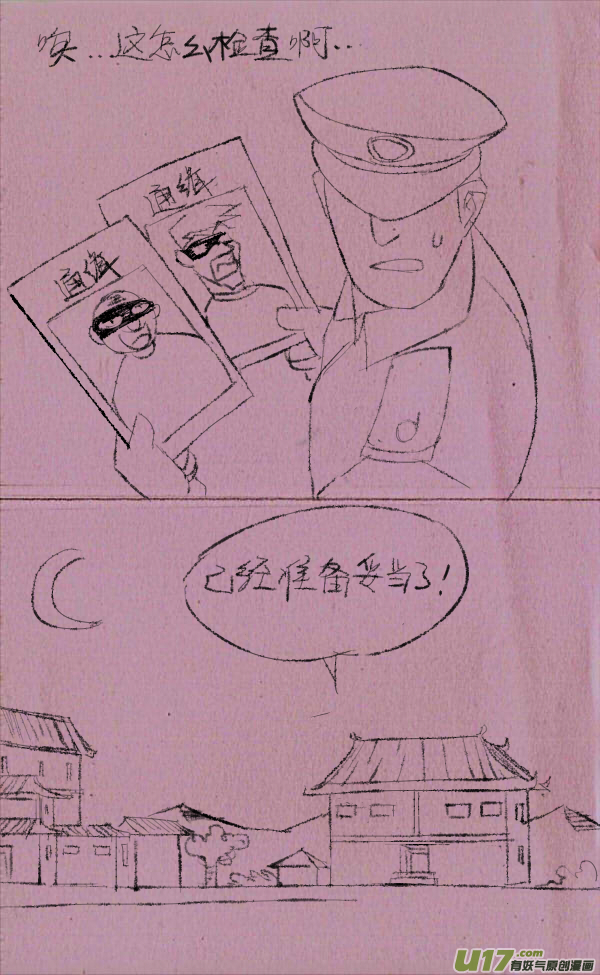 唉..这怎么检查啊..
通缉
通缉
已经准备妥当了!
U17.com
有妖气原创漫画